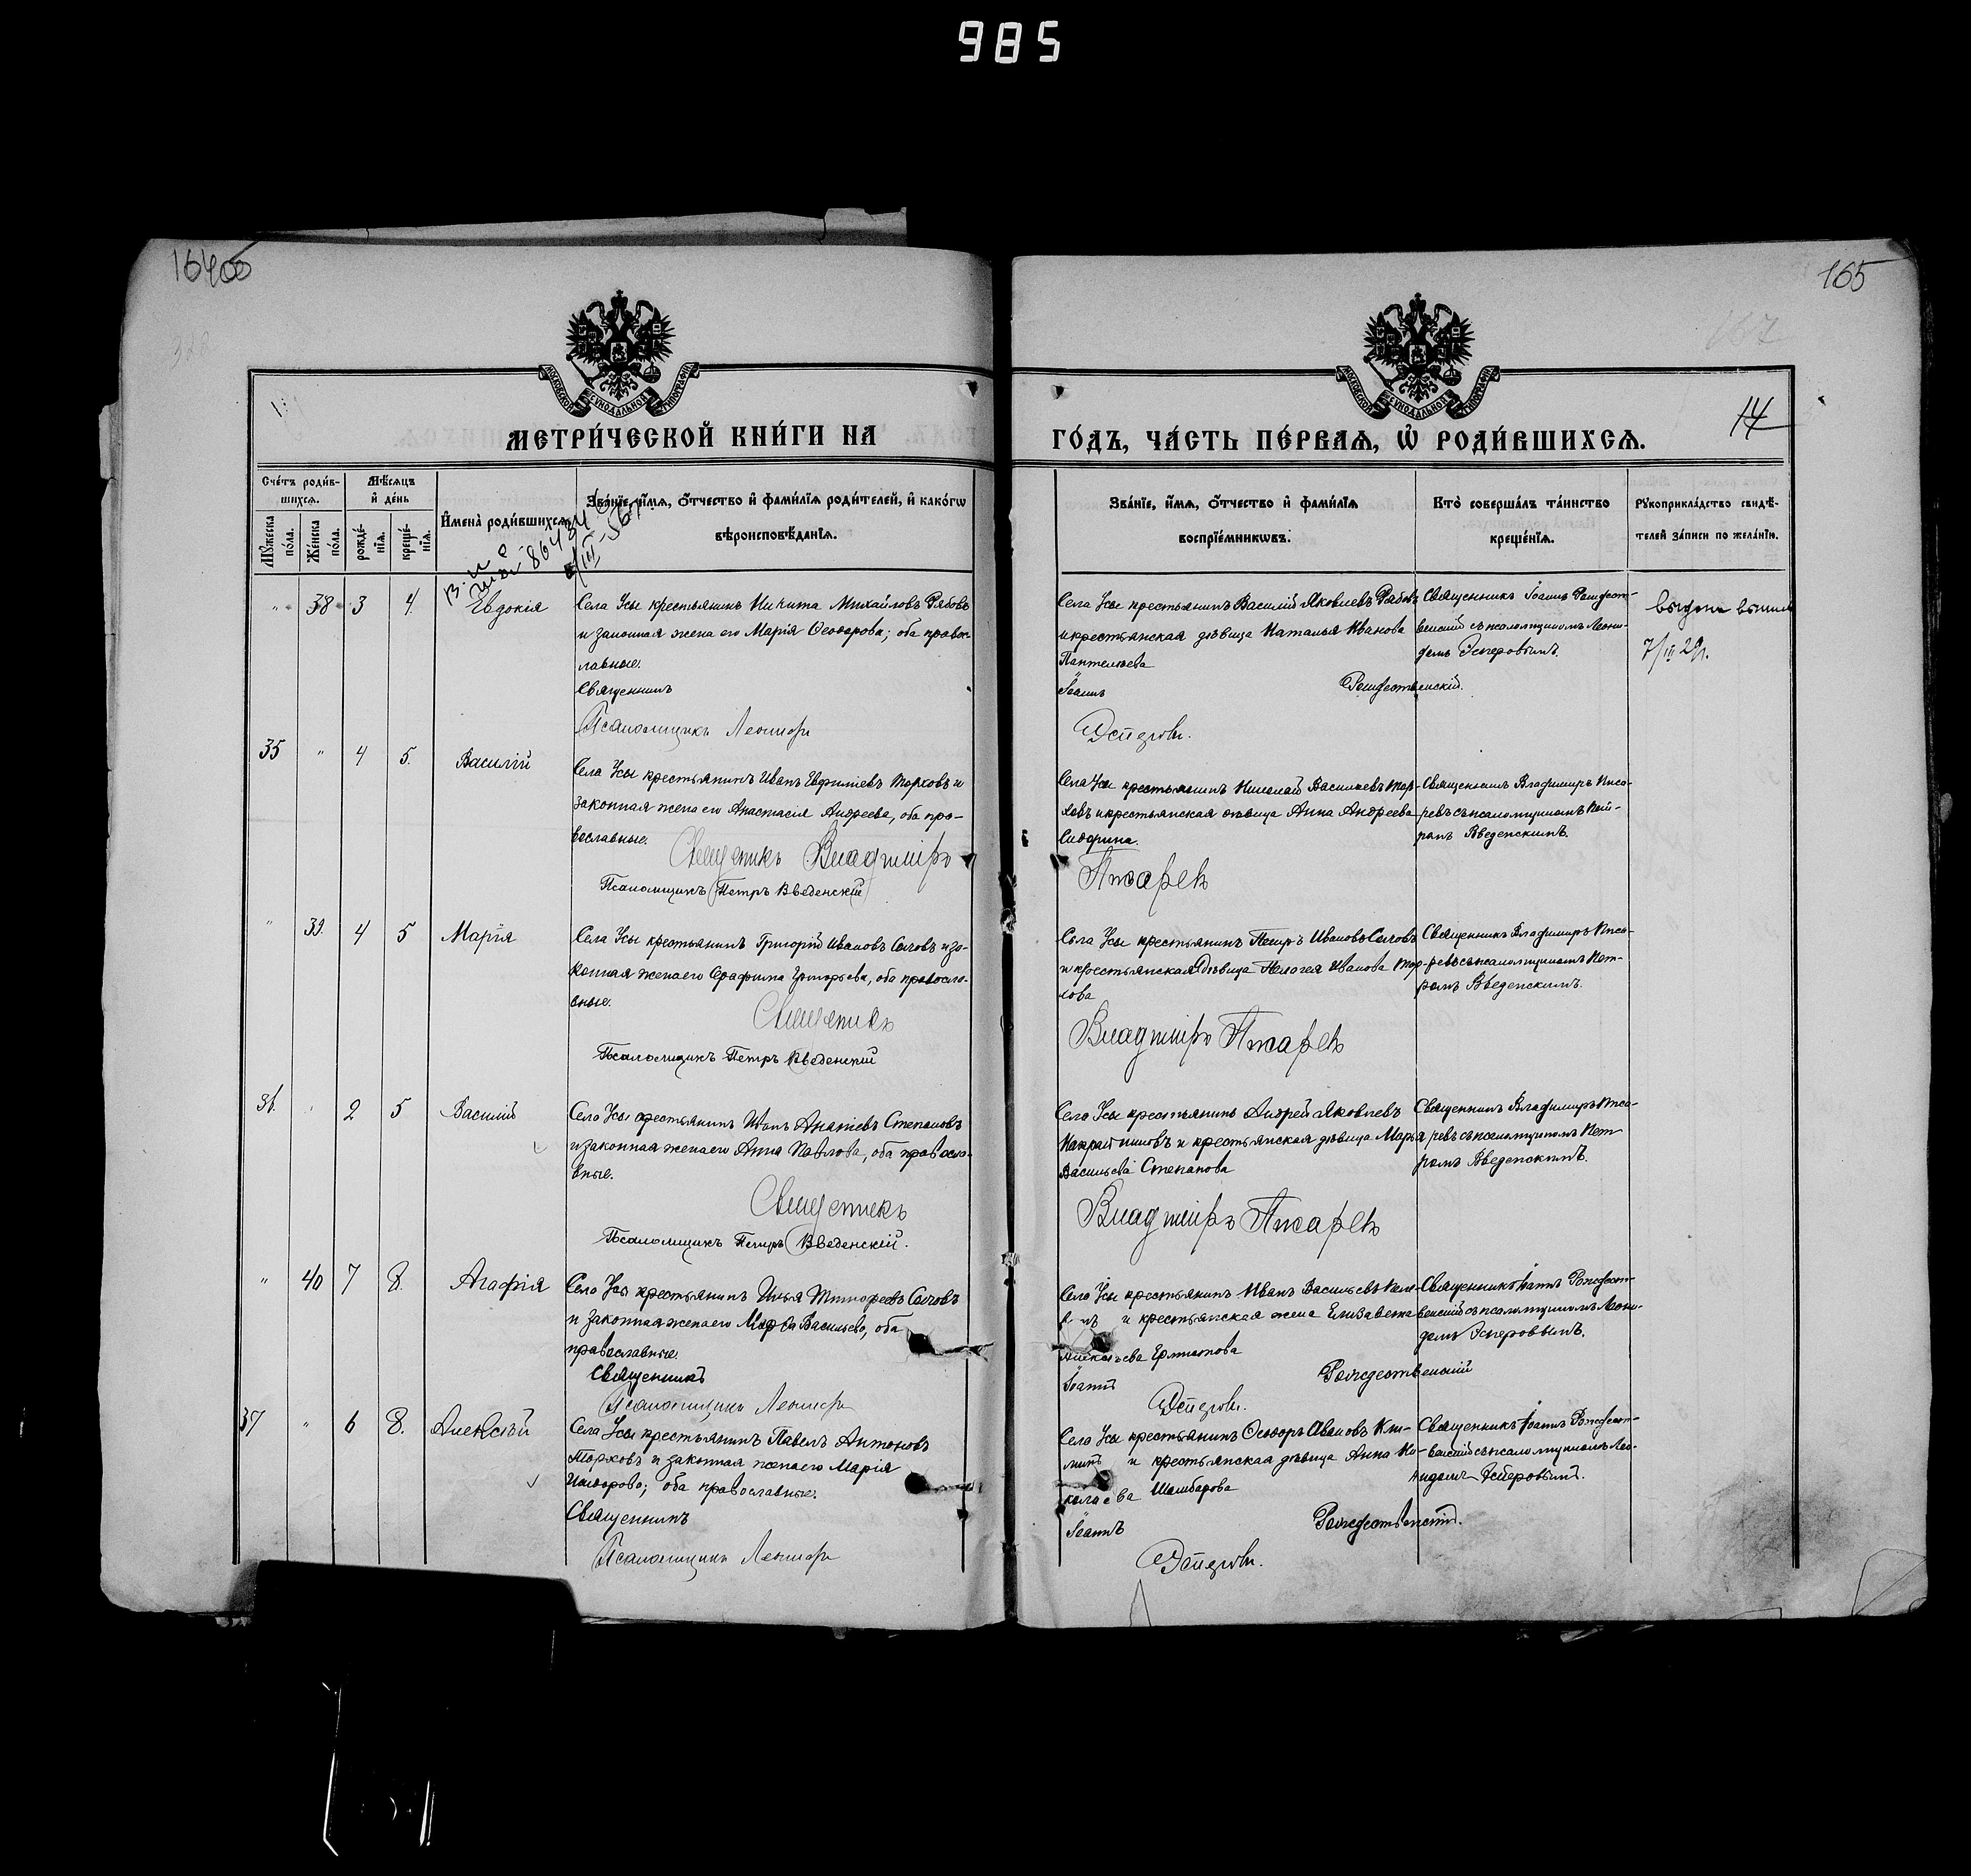 985
165
14
МОСКОВСКОЙ СУНОДАЛЬНОЙ ТИПОГРАФІИ
МОСКОВСКОЙ СУНОДАЛЬНОЙ ТИПОГРАФІИ
МЕТРИ́ЧЕСКОЙ КНИ́ГИ НА
ГО́ДЪ, ЧА́СТЬ ПЕ́РВАѦ, Ѡ҆ РОДИ́ВШИХСѦ.
Сче́тъ роди́в-
шихсѧ.
Мѣ́сѧцъ
и҆ де́нь
Мꙋ́жеска
по́ла.
Же́нска
по́ла.
рожде́-
нїѧ.
креще́-
нїѧ.
И҆мена̀ роди́вшихсѧ.
Зва́нїе, и҆́мѧ, ѻ҆́тчество и҆ фами́лїѧ роди́телей, и҆ како́гѡ
вѣроисповѣ́данїѧ.
Зва́нїе, и҆́мѧ, ѻ҆́тчество и҆ фами́лїѧ
воспрїе́мникѡвъ.
Кто̀ соверша́лъ та́инство
креще́нїѧ.
Рꙋкоприкла́дство свидѣ́-
телей за́писи по жела́нїю.
" 38 3 4. Евдокія
Села Усы крестьянинъ Никита Михайловъ Рябовъ
и законная жена его Марія Ѳеодорова; оба право-
лавные.
Священникъ
Псаломщикъ Леонидъ
Села Усы крестьянинъ Василій Яковлевъ Рябовъ
и крестьянская дѣвица Наталья Иванова
Пантелеева
Іоаннъ Рождественскій.
Эсперовъ.
Священникъ Іоаннъ Рождест-
венскій съ псаломщикомъ Леони-
домъ Эсперовымъ.
7/IV 29г.
35 " 4 5. Василій
Села Усы крестьянинъ Иванъ Евфиміевъ Торховъ и
законная жена его Анастасія Андреева, оба пра-
вославные.
Священникъ Владиміръ
Псаломщикъ Петръ Введенскій
Села Усы крестьянинъ Николай Васильевъ Тор-
ховъ и крестьянская дѣвица Анна Андреева
Писаревъ
Священникъ Владиміръ Писа-
ревъ съ псаломщикомъ Пет-
ромъ Введенскимъ.
" 39. 4 5 Марія
Села Усы крестьянинъ Григорій Ивановъ Сычовъ и за-
конная жена его Серафима Григорьева, оба правосла-
вные.
Священникъ
Псаломщикъ Петръ Введенскій
Села Усы крестьянинъ Петръ Ивановъ Сычовъ
и крестьянская дѣвица Пелагея Иванова Тор-
хова
Владиміръ Писаревъ
Священникъ Владиміръ Писа-
ревъ съ псаломщикомъ Пет-
ромъ Введенскимъ.
36. " 2 5 Василій
Села Усы крестьянинъ Иванъ Ананіевъ Степановъ
и законная жена его Анна Павлова, оба правосла-
вные.
Священникъ
Псаломщикъ Петръ Введенскій.
Села Усы крестьянинъ Андрей Яковлевъ
и крестьянская дѣвица Марья
Васильева Степанова
Владиміръ Писаревъ
Священникъ Владиміръ Писа-
ревъ съ псаломщикомъ Пет
ромъ Введенскимъ.
" 40 7 8. Агафія
Села Усы крестьянинъ Илья Тимофеевъ Сычовъ
и законная жена его Марѳа Васильева, оба
православные.
Священникъ
Псаломщикъ Леонидъ
Села Усы крестьянинъ Иванъ Васильевъ
и крестьянская жена Елизавета
Алексѣева
Іоаннъ Рождественскій
Эсперовъ.
Священникъ Іоаннъ Рождест-
венскій съ псаломщикомъ Леони-
домъ Эсперовымъ.
37 " 6 8. Алексѣй
Села Усы крестьянинъ Павелъ Антоновъ
Торховъ и законная жена его Марія
оба православные.
Священникъ
Псаломщикъ Леонидъ
Села Усы крестьянинъ Ѳеодоръ Ивановъ
и крестьянская дѣвица Анна Ни-
колаева Шамбарова
Іоаннъ Рождественскій.
Эсперовъ.
Священникъ Іоаннъ Рождест-
венскій съ псаломщикомъ Лео-
нидомъ Эсперовымъ.